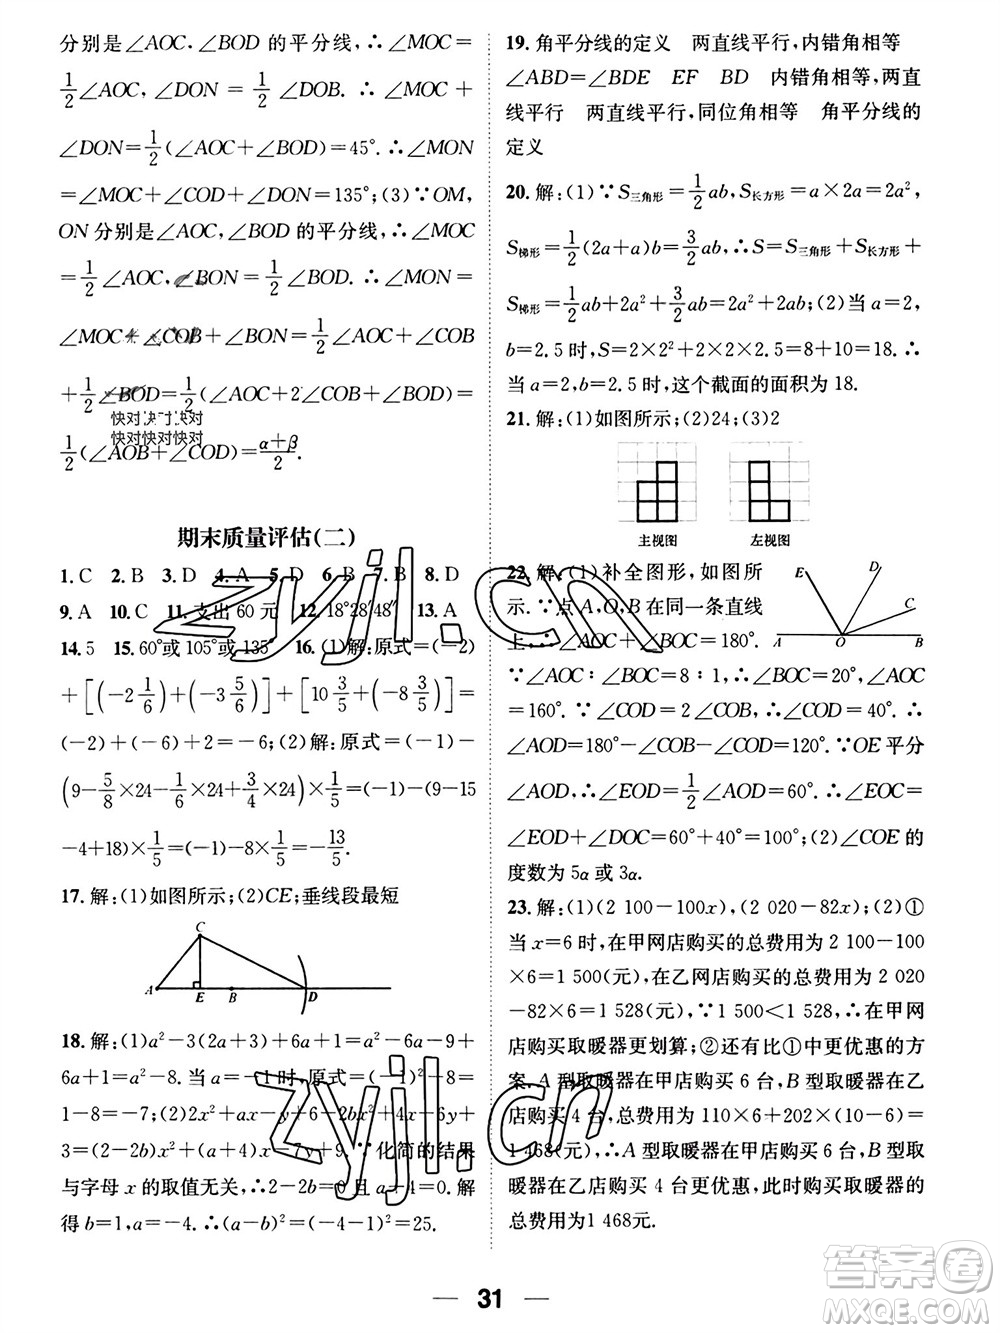 分别是∠AOC,∠BOD的平分线,∴∠MOC=
1/2∠AOC,∠DON=1/2∠BOD.∴∠MOC+
∠DON=1/2(∠AOC+∠BOD)=45°.∴∠MON
=∠MOC+∠COD+∠DON=135°;(3)∵OM,
ON分别是∠AOC,∠BOD的平分线,∴∠MOC
=1/2∠AOC,∠BON=1/2∠BOD.∴∠MON=
∠MOC+∠COB+∠BON=1/2∠AOC+∠COB+
1/2∠BOD=1/2(∠AOC+2∠COB+∠BOD)=
快对快对快对
快对快对快对
1/2(∠AOB+∠COD)=(α+β)/2.
期末质量评估(二)
1.C 2.B 3.D 4.A 5.D 6.B 7.B 8.D
9.A 10.C 11.支出60元 12.18°28′48″ 13.A
14.5 15.60°或105°或135° 16.(1)解:原式=(-2)
+[(-2 1/6)+(-3 5/6)]+[10 3/5+(-8 3/5)]=
(-2)+(-6)+2=-6;(2)解:原式=(-1)-
(9-5/8×24-1/6×24+3/4×24)×1/5=(-1)-(9-15
-4+18)×1/5=(-1)-8×1/5=-13/5.
17.解:(1)如图所示;(2)CE;垂线段最短
C
A E B D
18.解:(1)a²-3(2a+3)+6a+1=a²-6a-9+
6a+1=a²-8.当a=-1时,原式=(-1)²-8=1
-8=-7;(2)2x²+ax-y+6-2bx²-4x+6y+
13=(2-2b)x²+(a+4)x+5y+19.∵化简的结果
与字母x的取值无关,∴2-2b=0且a+4=0.解
得b=1,a=-4.∴(a-b)²=(-4-1)²=25.
19.角平分线的定义 两直线平行,内错角相等
∠ABD=∠BDE EF BD 内错角相等,两直
线平行 两直线平行,同位角相等 角平分线的
定义
20.解:(1)∵S三角形=1/2ab,S长方形=a×2a=2a²,
S梯形=1/2(2a+a)b=3/2ab,∴S=S三角形+S长方形+
S梯形=1/2ab+2a²+3/2ab=2a²+2ab;(2)当a=2,
b=2.5时,S=2×2²+2×2×2.5=8+10=18.∴
当a=2,b=2.5时,这个截面的面积为18.
21.解:(1)如图所示;(2)24;(3)2
主视图 左视图
22.解:(1)补全图形,如图所
示.∵点A,O,B在同一条直线
上,∴∠AOC+∠BOC=180°.
E D C
A O B
∵∠AOC∶∠BOC=8∶1,∴∠BOC=20°,∠AOC
=160°.∵∠COD=2∠COB,∴∠COD=40°.∴
∠AOD=180°-∠COB-∠COD=120°.∵OE平分
∠AOD,∴∠EOD=1/2∠AOD=60°.∴∠EOC=
∠EOD+∠DOC=60°+40°=100°;(2)∠COE的
度数为5α或3α.
23.解:(1)(2 100-100x),(2 020-82x);(2)①
当x=6时,在甲网店购买的总费用为2 100-100
×6=1 500(元),在乙网店购买的总费用为2 020
-82×6=1 528(元),∵1 500<1 528,∴在甲网
店购买取暖器更划算;②还有比①中更优惠的方
案.A型取暖器在甲店购买6台,B型取暖器在乙
店购买4台,总费用为110×6+202×(10-6)=
1 468(元).∴A型取暖器在甲店购买6台,B型取
暖器在乙店购买4台更优惠,此时购买取暖器的
总费用为1 468元.
31
zyjl.cn
zyjl.cn
答案圈
MXQE.COM